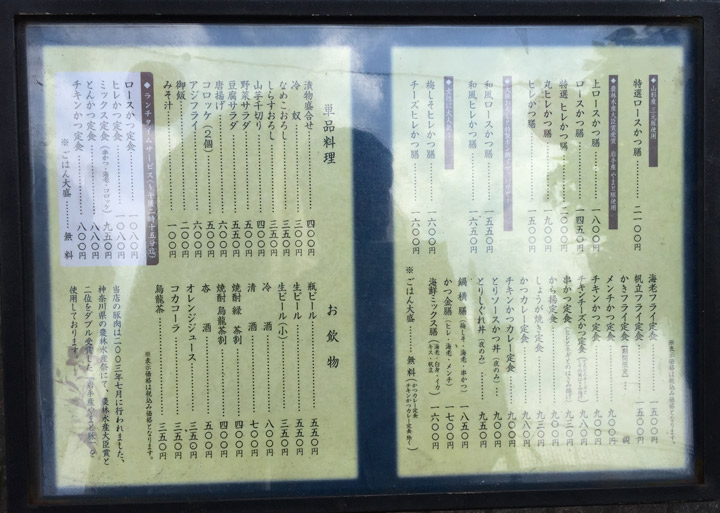 ◆山形産 三元豚使用
特選ロースかつ膳……二一〇〇円
◆農林水産大臣賞受賞 岩手産やまと豚使用
上ロースかつ膳……一八〇〇円
ロースかつ膳……一四五〇円
特選ヒレかつ膳……二〇〇〇円
丸ヒレかつ膳……一九〇〇円
ヒレかつ膳……一五〇〇円
和風ロースかつ膳……一五五〇円
和風ヒレかつ膳……一六〇〇円
梅しそヒレかつ膳……一六〇〇円
チーズヒレかつ膳……一六〇〇円
※表示価格は税込み価格となります。
海老フライ定食……一五〇〇円
帆立フライ定食……一五〇〇円
かきフライ定食(期間限定)
メンチかつ定食……九〇〇円
チキンかつ定食……九〇〇円
チキンチーズかつ定食
串かつ定食
から揚定食……九三〇円
しょうが焼き定食
かつカレー定食……九八〇円
チキンかつカレー定食……九〇〇円
とりソースかつ丼(夜のみ)……九五〇円
とりしぐれ丼(夜のみ)……九五〇円
鍋横膳(梅しそ・海老・串かつ)……一八五〇円
かつ金膳(ヒレ・海老・メンチ)……一七〇〇円
海鮮ミックス膳(海老・白身・イカ キス・帆立)……一六〇〇円
※ごはん大盛……無料(かつカレー定食 チキンかつカレー定食 除く)
単品料理
漬物盛合せ……四〇〇円
冷奴……三〇〇円
なめこおろし……三五〇円
しらすおろし……三五〇円
山芋千切り……四〇〇円
野菜サラダ……五〇〇円
豆腐サラダ……五五〇円
唐揚げ……五〇〇円
コロッケ(2個)……六〇〇円
アジフライ……六〇〇円
御飯……二〇〇円
みそ汁……一〇〇円
◆ランチタイムサービス(~午後二時十五分迄)
ロースかつ定食……一〇八〇円
ヒレかつ定食……一〇八〇円
ミックス定食(串かつ・海老・コロッケ)……九五〇円
とんかつ定食……八八〇円
チキンかつ定食……八〇〇円
※ごはん大盛……無料
お飲物
瓶ビール……五五〇円
生ビール……五五〇円
生ビール(小)……三五〇円
冷酒……八〇〇円
清酒……七〇〇円
焼酎緑茶割……四〇〇円
焼酎烏龍茶割……四〇〇円
杏酒……五〇〇円
オレンジジュース……三五〇円
コカコーラ……三五〇円
烏龍茶……三五〇円
※表示価格は税込み価格となります。
当店の豚肉は二〇〇三年七月に行われました、
神奈川県の農林水産祭にて、農林水産大臣賞と
二位をダブル受賞した
使用しております。